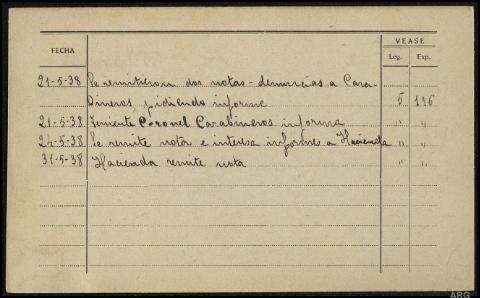 FECHA VEASE
Leg. Exp.
21-5-38 Se remitieron dos notas-denuncias a Cara-
bineros, pidiendo informe 5 116
21-5-38 Teniente Coronel Carabineros informa " "
24-5-38 Se remite nota e interesa informes a Hacienda " "
31-5-38 Hacienda remite nota " "
ARG